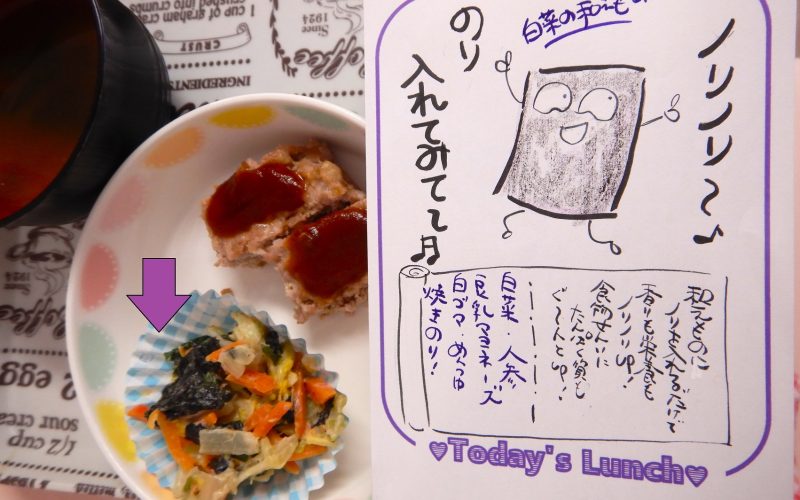 1 cup of graham cracker
crumbs into
Coffee
Since
1924
CRUST
INGREDIENTS
Coffee
Since
1924
2 egg
1/2 cup
sour crea
白菜の和えもの
ノリノリ〜♪
のり
入れてみてて♬
和えものに
ノリを入れるだけで
香りも栄養も
ノリノリup!
食物せんいに
たんぱく質も
ぐ〜んとup!
白菜・人参
豆乳マヨネーズ
白ゴマ・めんつゆ
焼きのり!
♥Today's Lunch♥